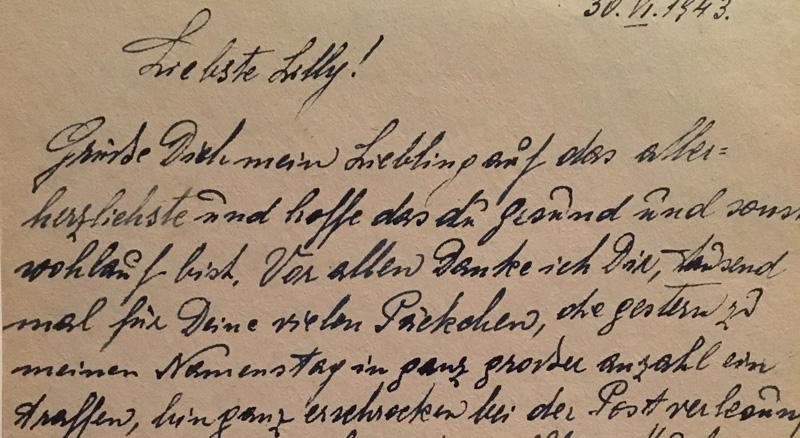 30. VI. 1943.
Liebste Lilly!
Grüße Dich mein Liebling auf das aller=
herzlichste und hoffe das du gesund und sonst
wohlauf bist. Vor allen Danke ich Dir, tausend
mal für Deine vielen Päckchen, die gestern zu
meinen Namenstag in ganz großer anzahl ein
traffen, bin ganz erschrocken bei der Post